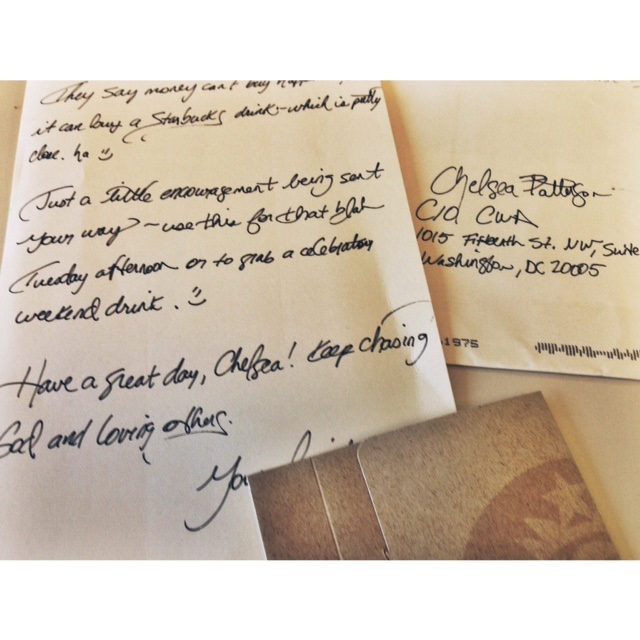 They say money can't buy
it can buy a Starbucks drink - which is pretty
close. ha
Just a little encouragement being sent
your way - use this for that blah
Tuesday afternoon or to grab a celebration
weekend drink.
Have a great day, Chelsea! Keep chasing
God and loving others.
Chelsea Patterson
C/O CWA
1015 Fifteenth St. NW, Suite
Washington, DC 20005
-1975